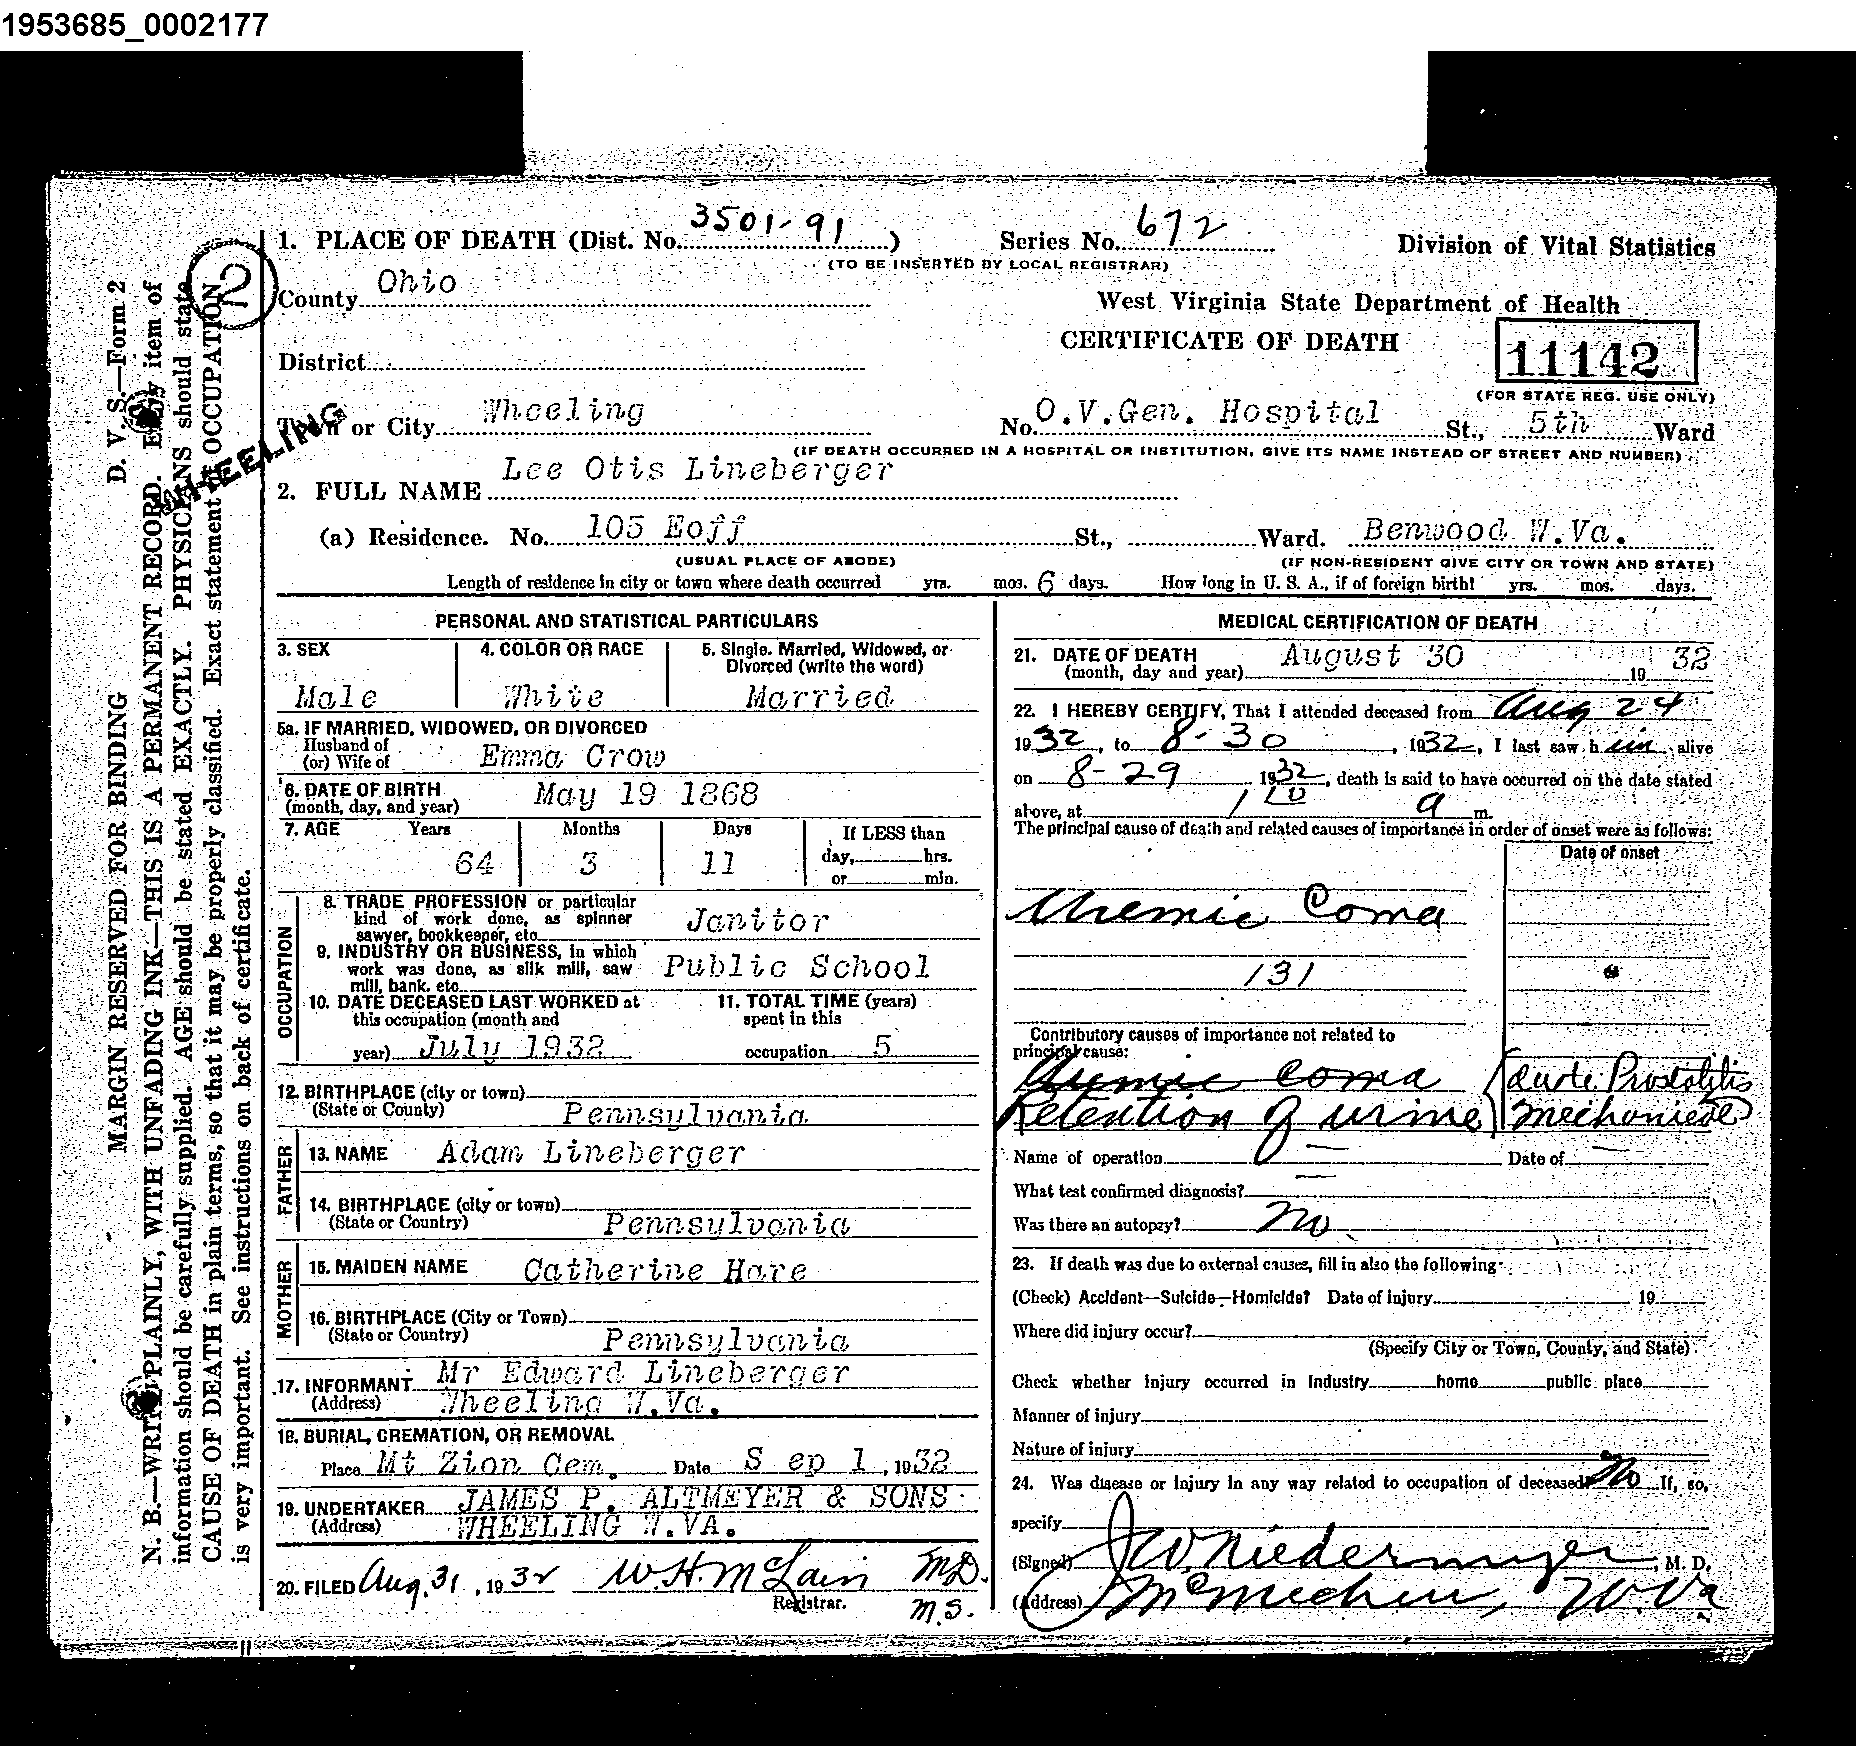 1953685_0002177
1. PLACE OF DEATH (Dist. No. 3501-91 ) Series No. 672 Division of Vital Statistics
(TO BE INSERTED BY LOCAL REGISTRAR)
County Ohio West Virginia State Department of Health
CERTIFICATE OF DEATH 11142
District
(FOR STATE REG. USE ONLY)
Town or City Wheeling No. O.V.Gen. Hospital St., 5th Ward
(IF DEATH OCCURRED IN A HOSPITAL OR INSTITUTION, GIVE ITS NAME INSTEAD OF STREET AND NUMBER)
2. FULL NAME Lee Otis Lineberger
(a) Residence. No. 105 Eoff St., Ward. Benwood W.Va.
(USUAL PLACE OF ABODE) (IF NON-RESIDENT GIVE CITY OR TOWN AND STATE)
Length of residence in city or town where death occurred yrs. mos. 6 days. How long in U. S. A., if of foreign birth? yrs. mos. days.
PERSONAL AND STATISTICAL PARTICULARS
3. SEX 4. COLOR OR RACE 5. Single. Married, Widowed, or
Divorced (write the word)
Male White Married
5a. IF MARRIED, WIDOWED, OR DIVORCED
Husband of
(or) Wife of Emma Crow
6. DATE OF BIRTH
(month, day, and year) May 19 1868
7. AGE Years Months Days If LESS than
64 3 11 day, hrs.
or min.
OCCUPATION
8. TRADE PROFESSION or particular
kind of work done, as spinner Janitor
sawyer, bookkeeper, etc.
9. INDUSTRY OR BUSINESS, in which
work was done, as silk mill, saw Public School
mill, bank. etc.
10. DATE DECEASED LAST WORKED at 11. TOTAL TIME (years)
this occupation (month and spent in this
year) July 1932 occupation 5
12. BIRTHPLACE (city or town)
(State or County) Pennsylvania
FATHER
13. NAME Adam Lineberger
14. BIRTHPLACE (city or town)
(State or Country) Pennsylvania
MOTHER
15. MAIDEN NAME Catherine Hare
16. BIRTHPLACE (City or Town)
(State or Country) Pennsylvania
17. INFORMANT Mr Edward Lineberger
(Address) Wheeling W.Va.
18. BURIAL, CREMATION, OR REMOVAL
Place Mt Zion Cem. Date Sep 1, 1932
19. UNDERTAKER JAMES P. ALTMEYER & SONS
(Address) WHEELING W.VA.
20. FILED Aug. 31, 1932 W.H. McLain M.D.
Registrar. M.S.
MEDICAL CERTIFICATION OF DEATH
21. DATE OF DEATH August 30 32
(month, day and year) 19
22. I HEREBY CERTIFY, That I attended deceased from Aug 24
1932, to 8-30, 1932, I last saw him alive
on 8-29 1932, death is said to have occurred on the date stated
above, at 1 10 a m.
The principal cause of death and related causes of importance in order of onset were as follows:
Date of onset
Uremic Coma
131
Contributory causes of importance not related to
principal cause:
Uremic Coma
Retention of urine { Acute Prostatitis
Mechanical
Name of operation — Date of —
What test confirmed diagnosis? —
Was there an autopsy? No.
23. If death was due to external causes, fill in also the following:
(Check) Accident—Suicide—Homicide? Date of injury 19
Where did injury occur?
(Specify City or Town, County, and State)
Check whether injury occurred in industry home public place
Manner of injury
Nature of injury
24. Was disease or injury in any way related to occupation of deceased? No If, so,
specify
(Signed) J W Niedermyer, M. D.
(Address) McMechen, W.Va
MARGIN RESERVED FOR BINDING D. V. S.—Form 2
N. B.—WRITE PLAINLY, WITH UNFADING INK—THIS IS A PERMANENT RECORD. Every item of
information should be carefully supplied. AGE should be stated EXACTLY. PHYSICIANS should state
CAUSE OF DEATH in plain terms, so that it may be properly classified. Exact statement of OCCUPATION
is very important. See instructions on back of certificate.
2
WHEELING